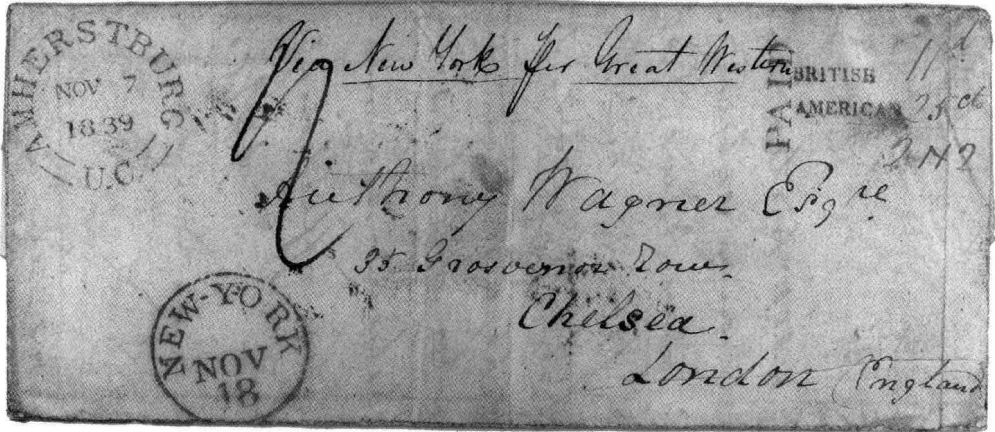 AMHERSTBURG
NOV 7
1839
U.C.
Via New York per Great Western
PAID
BRITISH 11d
AMERICAN 25 cts
Anthony Wagner Esqre
35 Grosvenor Row.
Chelsea.
London England
NEW-YORK
NOV
18